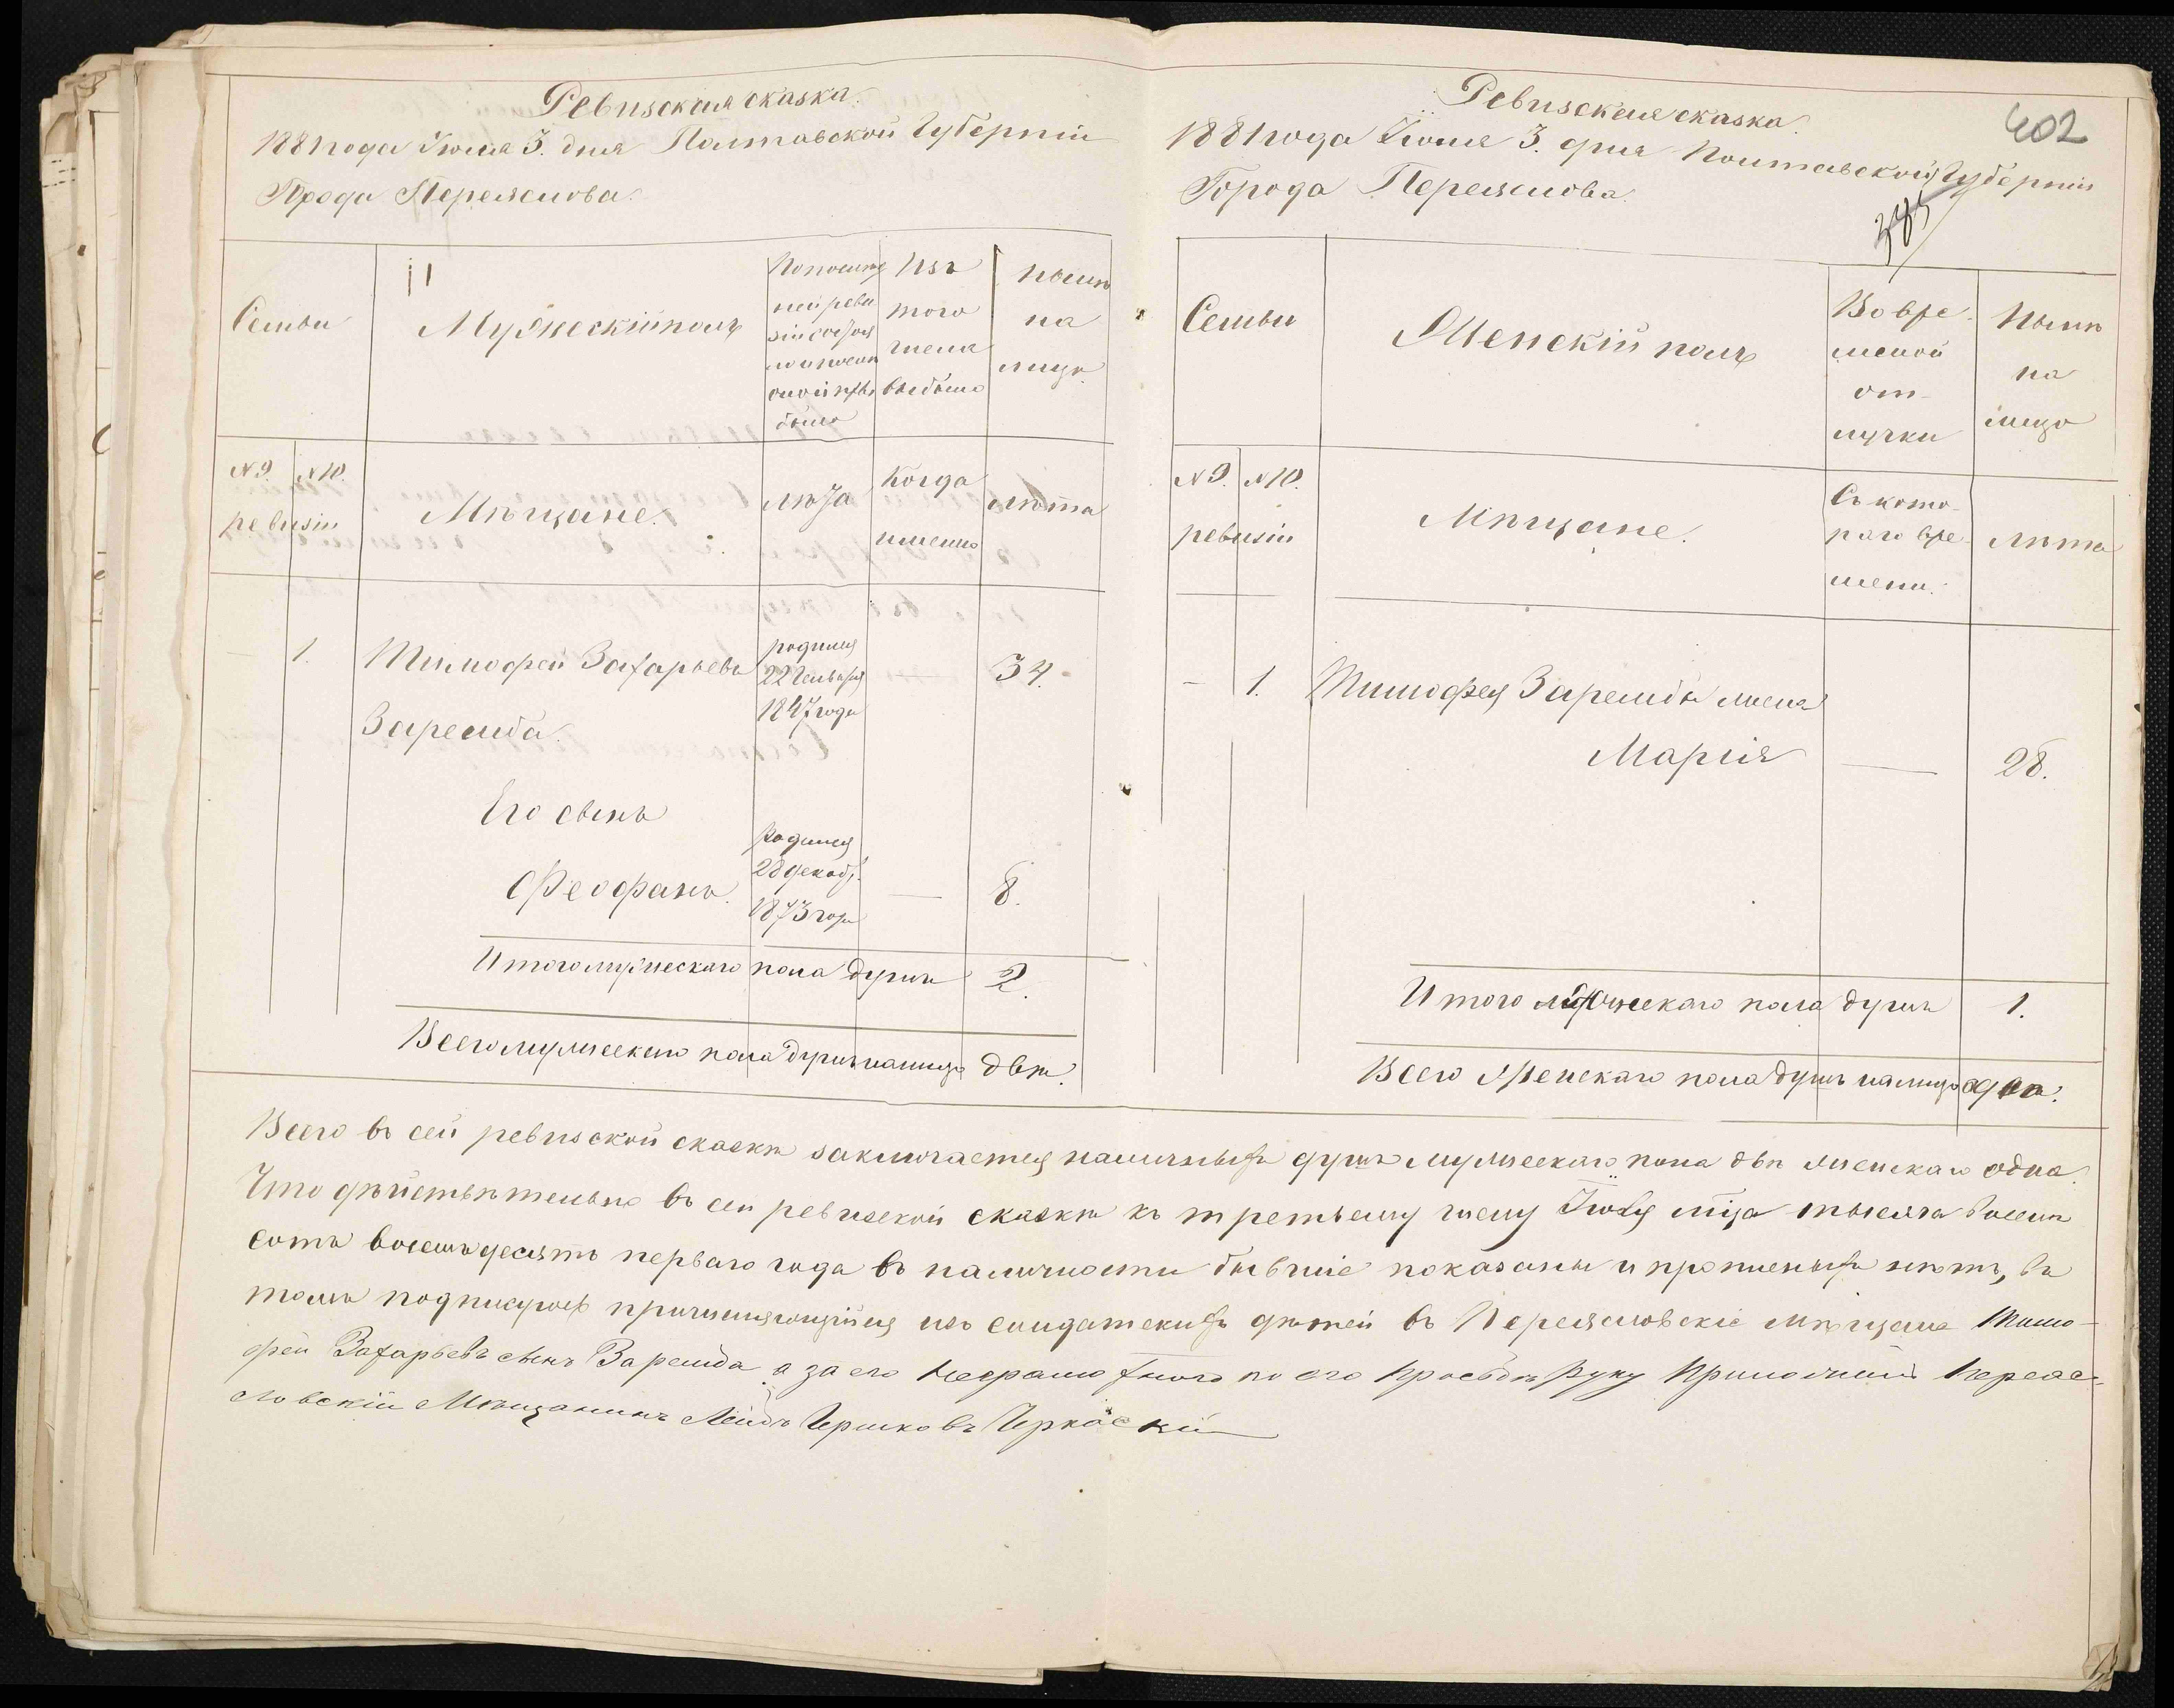 Ревизская сказка.
1881 года Июля 3. дня Полтавской Губерніи
Города Переяслова.
Семьи
Мужескій полъ
По послѣд
ней реви
зіи состоя
ло и послѣ
оной прі
было
Изъ
того
числа
выбыло
Нынѣ
на
лицо.
№ 9.
№ 10.
ревизіи
Мѣщане.
лѣта
Когда
именно
лѣта
1.
Тимофей Захарьевъ
Заремба.
родился
22 Генваря
1847 года
34.
Его сынъ
Феофанъ.
родился
28 декаб.
1873 года
—
8.
Итого мужескаго пола душъ 2.
Всего мужескаго пола душъ налицо двѣ.
402
Ревизская сказка.
1881 года Июля 3. дня Полтавской Губерніи
Города Переяслова.
Семьи
Женскій полъ
Во вре
меной
от
лучки
Нынѣ
на
лицо
№ 9.
№ 10.
ревизіи
Мѣщане.
Съ кото
раго вре
мени.
лѣта
— 1. Тимофея Зарембы жена
Марія — 28.
Итого женскаго пола душъ 1.
Всего женскаго пола душъ налицо одна.
Всего въ сей ревизской сказкѣ заключается наличныхъ душъ мужескаго пола двѣ женскаго одна.
Что дѣйствительно въ сей ревизской сказкѣ къ третьему числу Июля м-ца тысяча восемь
сотъ восемьдесятъ перваго года въ наличности бывшіе показаны и прописныхъ нѣтъ, въ
томъ подписуюсь причисляющійся изъ солдатскихъ дѣтей въ Переясловскіе мѣщане Тимо-
фей Захарьевъ сынъ Заремба а за его неграмотного по его прозбѣ руку приложилъ Переяс-
ловскій Мѣщанинъ Лейбъ Гершковъ Черкаскій